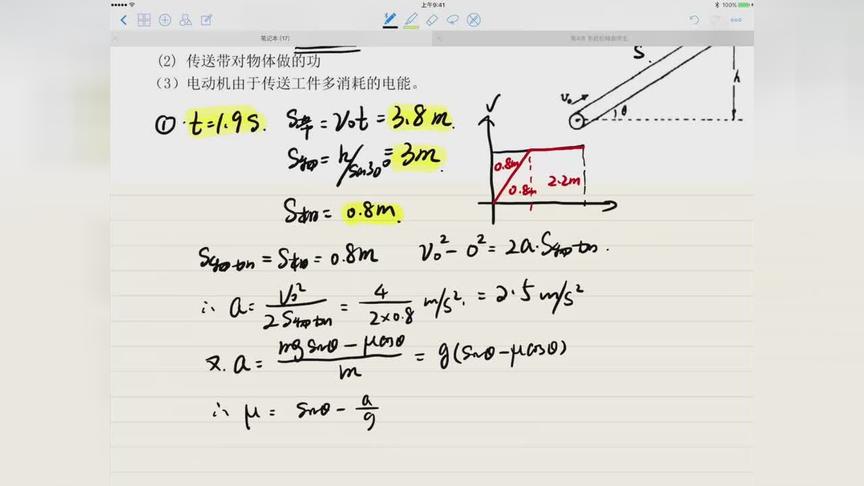 上午9:41
100%
笔记本 (17)
(2) 传送带对物体做的功
(3) 电动机由于传送工件多消耗的电能。
S
h
v₀
θ
① t=1.9s. S带=v₀t=3.8m.
S物=h/sin30°=3m
S相=0.8m.
V
0.8m
0.8m 2.2m
S物加=S相=0.8m v₀²-0²=2a·S物加.
∴ a=v₀²/2S物加=4/2×0.8 m/s².=2.5m/s²
又.a=mgsinθ-μcosθ/m=g(sinθ-μcosθ)
∴ μ=sinθ-a/g